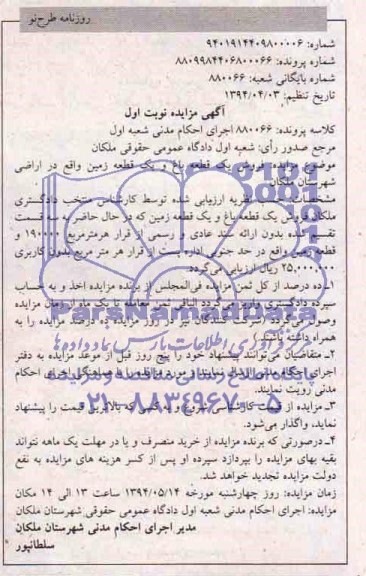 روزنامه طرح نو
شماره: ۹۴۰۱۹۱۴۴۰۹۸۰۰۰۰۶
شماره پرونده: ۸۸۰۹۹۸۴۴۰۶۸۰۰۰۶۶
شماره بایگانی شعبه: ۸۸۰۰۶۶
تاریخ تنظیم: ۱۳۹۴/۰۴/۰۳
آگهی مزایده نوبت اول
کلاسه پرونده: ۸۸۰۰۶۶ اجرای احکام مدنی شعبه اول
مرجع صدور رأی: شعبه اول دادگاه عمومی حقوقی ملکان
موضوع مزایده: فروش یک قطعه باغ و یک قطعه زمین واقع در اراضی
شهرستان ملکان
مشخصات: حسب نظریه ارزیابی شده توسط کارشناس منتخب دادگستری
ملکان فروش یک قطعه باغ و یک قطعه زمین که در حال حاضر به سه قسمت
تقسیم شده بدون ارائه سند عادی و رسمی از قرار هرمترمربع ۱۹۰۰۰۰ و
قطعه زمین واقع در حد جنوبی اداره پست از قرار هر متر مربع بدون کاربری
۲۵,۰۰۰,۰۰۰ ریال ارزیابی می‌گردد.
۱ـ ده درصد از کل ثمن مزایده فی‌المجلس از برنده مزایده اخذ و به حساب
سپرده دادگستری واریز می‌گردد الباقی ثمن معامله تا یک ماه از زمان مزایده
وصول می‌گردد (شرکت کنندگان نیز در روز مزایده ده درصد مزایده را به
همراه داشته باشند)
۲ـ متقاضیان می‌توانند پیشنهاد خود را پنج روز قبل از موعد مزایده به دفتر
اجرای احکام مدنی ارسال نمایند و مورد مزایده را با هماهنگی اجرای احکام
مدنی رویت نمایند.
۳ـ مزایده از قیمت کارشناسی شروع و به کسی که بالاترین قیمت را پیشنهاد
نماید، واگذار می‌شود.
۴ـ درصورتی که برنده مزایده از خرید منصرف و یا در مهلت یک ماهه نتواند
بقیه بهای مزایده را بپردازد سپرده او پس از کسر هزینه های مزایده به نفع
دولت مزایده تجدید خواهد شد.
زمان مزایده: روز چهارشنبه مورخه ۱۳۹۴/۰۵/۱۴ ساعت ۱۳ الی ۱۴ مکان
مزایده: اجرای احکام مدنی شعبه اول دادگاه عمومی حقوقی شهرستان ملکان
مدیر اجرای احکام مدنی شهرستان ملکان
سلطانپور
ParsNamadData
فن آوری اطلاعات پارس نماد داده ها
پایگاه اطلاع رسانی مناقصه و مزایده
۰۲۱-۸۸۳۴۹۶۷۰-۵